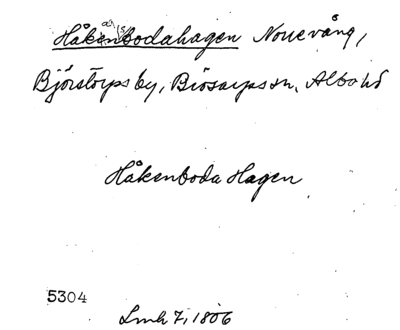 Håkenbodahagen Norrevång,
Björstorps by, Brösarps sn, Albo hd
Håkenboda Hagen
5304
Lmh 7, 1806